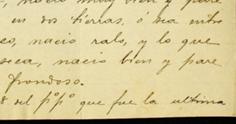 nació muy bien y pare
en dos tierras, ó sea entre
co, nació ralo, y lo que
seca, nació bien y pare
frondoso.
del p.º p.º que fue la ultima